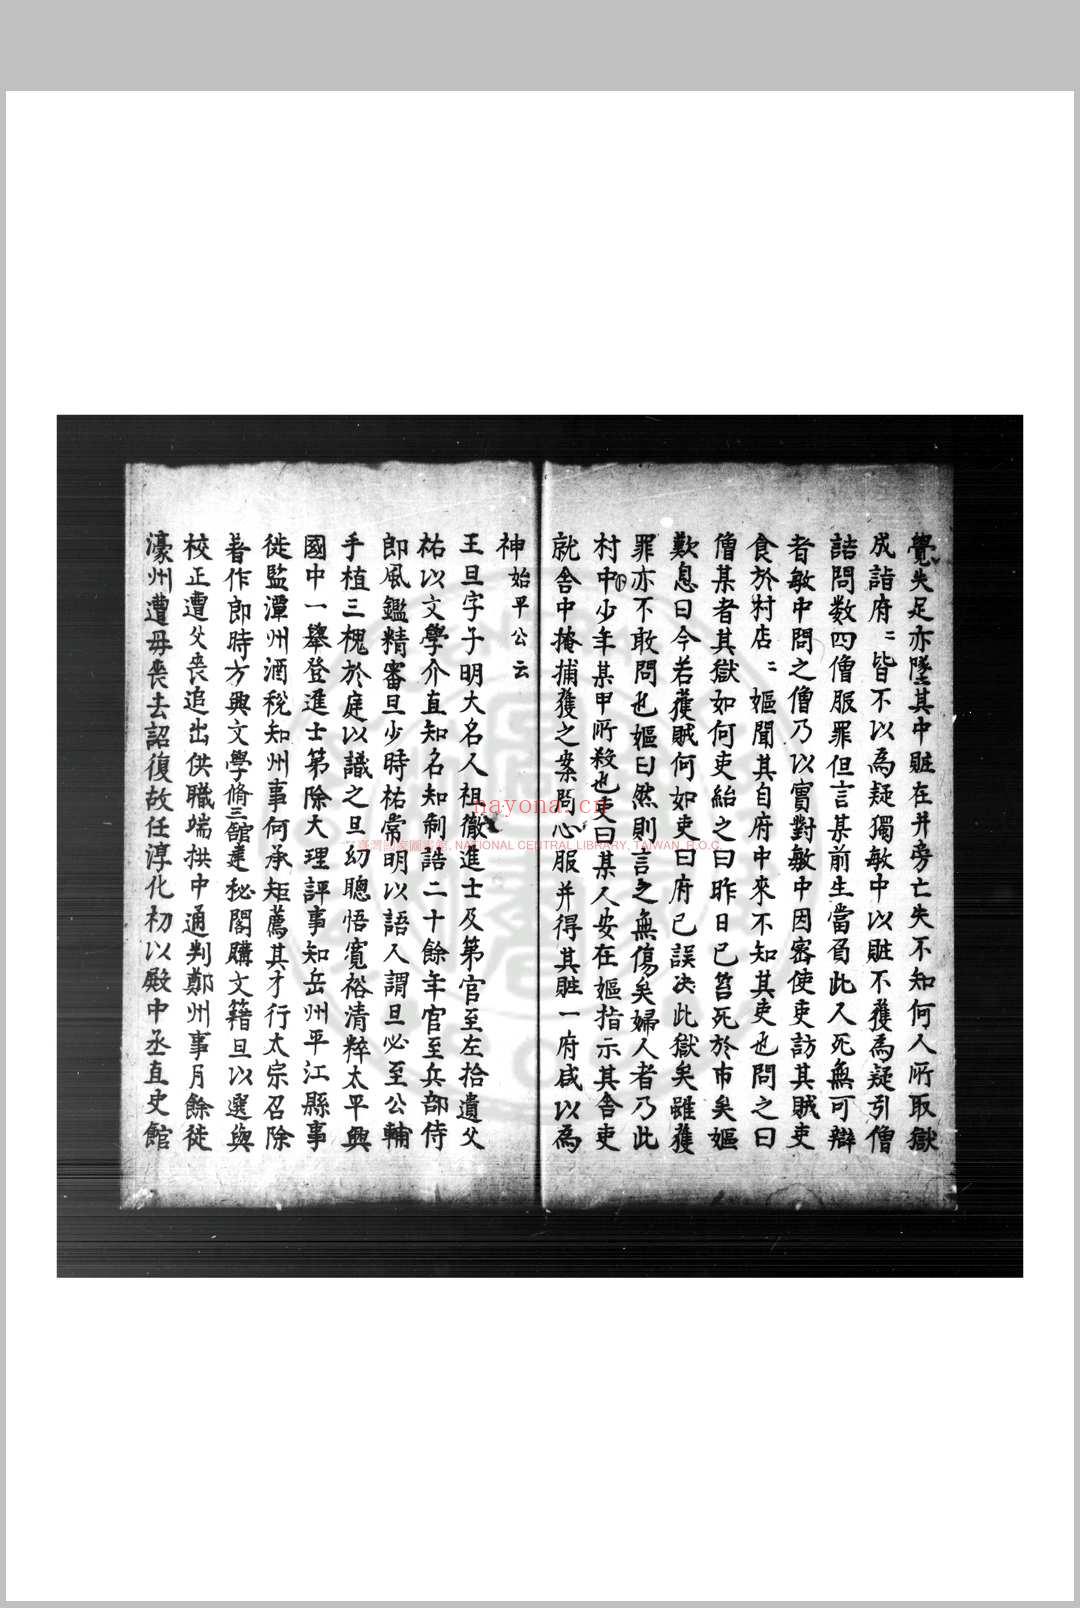 覺失足亦墜其中賍在井旁亡失不知何人所取獄
成詣府〻皆不以為疑獨敏中以賍不獲為疑引僧
詰問数四僧服罪但言某前生當負此人死無可辯
者敏中問之僧乃以實對敏中因密使吏訪其賊吏
食於村店〻嫗聞其自府中來不知其吏也問之曰
僧某者其獄如何吏紿之曰昨日已笞死於市矣嫗
歎息曰今若獲賊何如吏曰府已誤决此獄矣雖獲
罪亦不敢問也嫗曰然則言之無傷矣婦人者乃此
村中少年某甲所殺也吏曰某人安在嫗指示其舍吏
就舍中掩捕獲之案問心服并得其賍一府咸以為
神始平公云
王旦字子明大名人祖徹進士及第官至左拾遺父
祐以文學介直知名知制誥二十餘年官至兵部侍
郎風鑑精審旦少時祐常明以語人謂旦必至公輔
手植三槐於庭以識之旦幼聰悟寛裕清粹太平興
國中一舉登進士第除大理評事知岳州平江縣事
徙監潭州酒稅知州事何承矩薦其才行太宗召除
著作郎時方興文學脩三館建秘閣購文籍旦以選與
校正遭父喪追出供職端拱中通判鄭州事月餘徙
濠州遭母喪去詔復故任淳化初以殿中丞直史館
nayona.cn
臺灣國家圖書館, NATIONAL CENTRAL LIBRARY, TAIWAN, R.O.C.